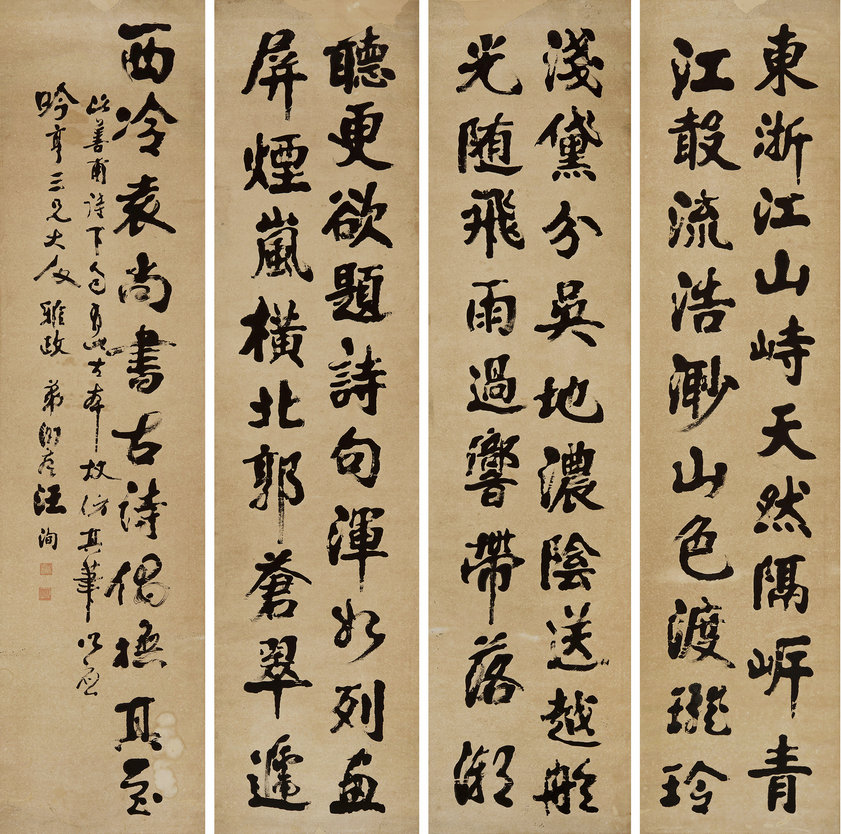 東浙江山峙天然隔岸青
江聲流浩渺山色渡瓏玲
淺黛分吳地濃陰送越舲
光随飛雨過響帶落潮
聽更欲題詩句渾如列畫
屏煙嵐橫北郭蒼翠遞
西泠袁尚書古詩偶橅其
此善甫詩下 古本故仿其筆
吟亭三兄大人雅政 弟 汪洵